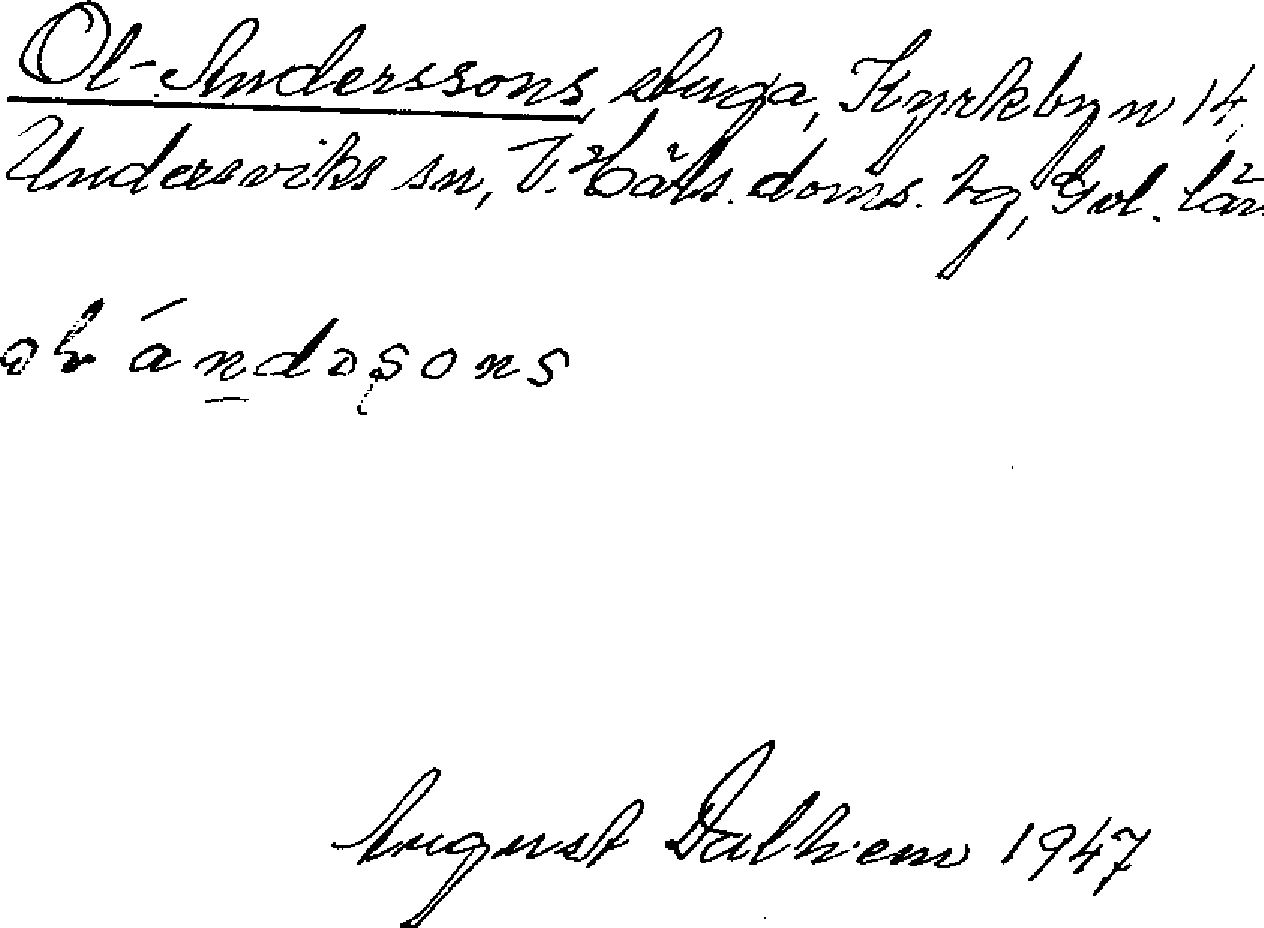 Ol-Anderssons, stuga, Kyrkbyn 14,
Undersviks sn, V. Häls. doms. hg, Gvl. län
ándəsons
August Dalhem 1947